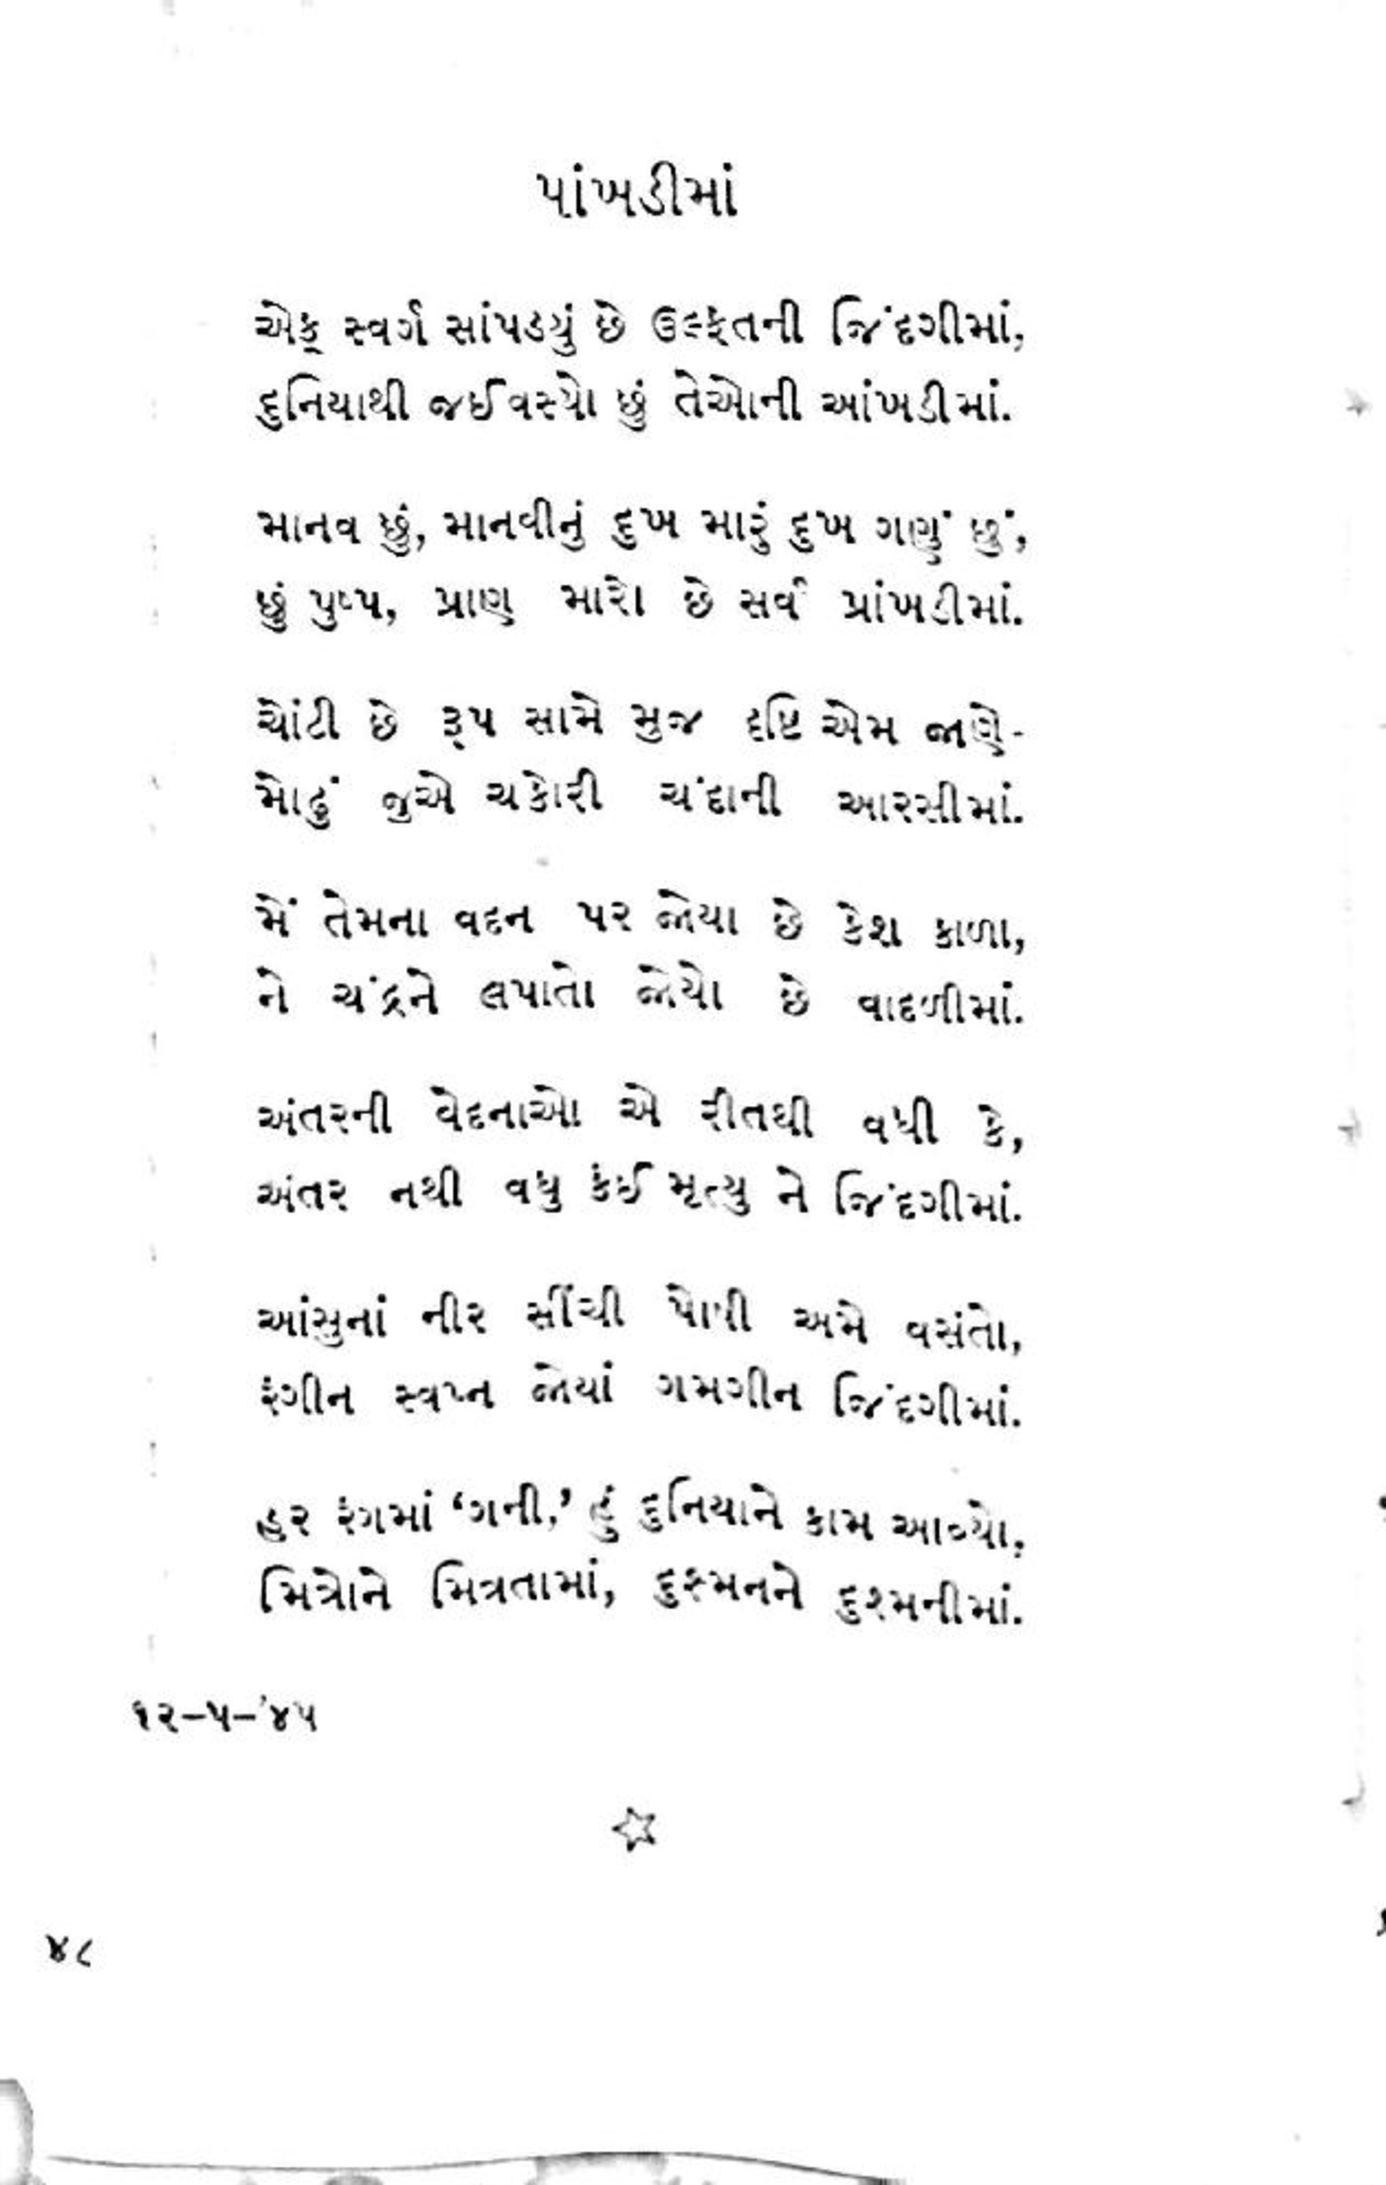 પાંખડીમાં
એક સ્વર્ગ સાંપડયું છે ઉલ્ફતની જિંદગીમાં,
દુનિયાથી જઈ વસ્યો છું તેઓની આંખડીમાં.
માનવ છું, માનવીનું દુખ મારું દુખ ગણું છું,
છું પુષ્પ, પ્રાણ મારો છે સર્વ પ્રાંખડીમાં.
ચોંટી છે રૂપ સામે મુજ દૃષ્ટિ એમ જાણે-
મોઢું જુએ ચકોરી ચંદાની આરસીમાં.
મેં તેમના વદન પર જોયા છે કેશ કાળા,
ને ચંદ્રને લપાતો જોયો છે વાદળીમાં.
અંતરની વેદનાઓ એ રીતથી વધી કે,
અંતર નથી વધુ કંઈ મૃત્યુ ને જિંદગીમાં.
આંસુનાં નીર સીંચી પોષી અમે વસંતો,
રંગીન સ્વપ્ન જોયાં ગમગીન જિંદગીમાં.
હર રંગમાં ‘ગની,’ હું દુનિયાને કામ આવ્યો,
મિત્રોને મિત્રતામાં, દુશ્મનને દુશ્મનીમાં.
૧૨-૫-’૪૫
☆
૪૮